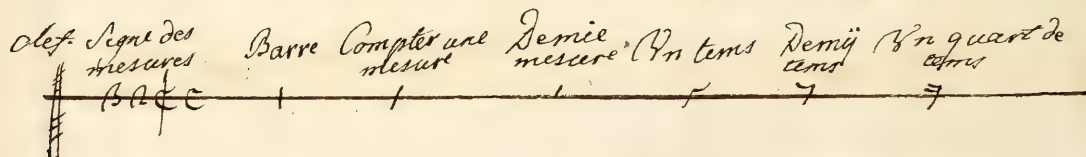 Clef. Signe des mesures Barre Compter une mesure Demie mesure Un tems Demÿ tems Un quart de tems